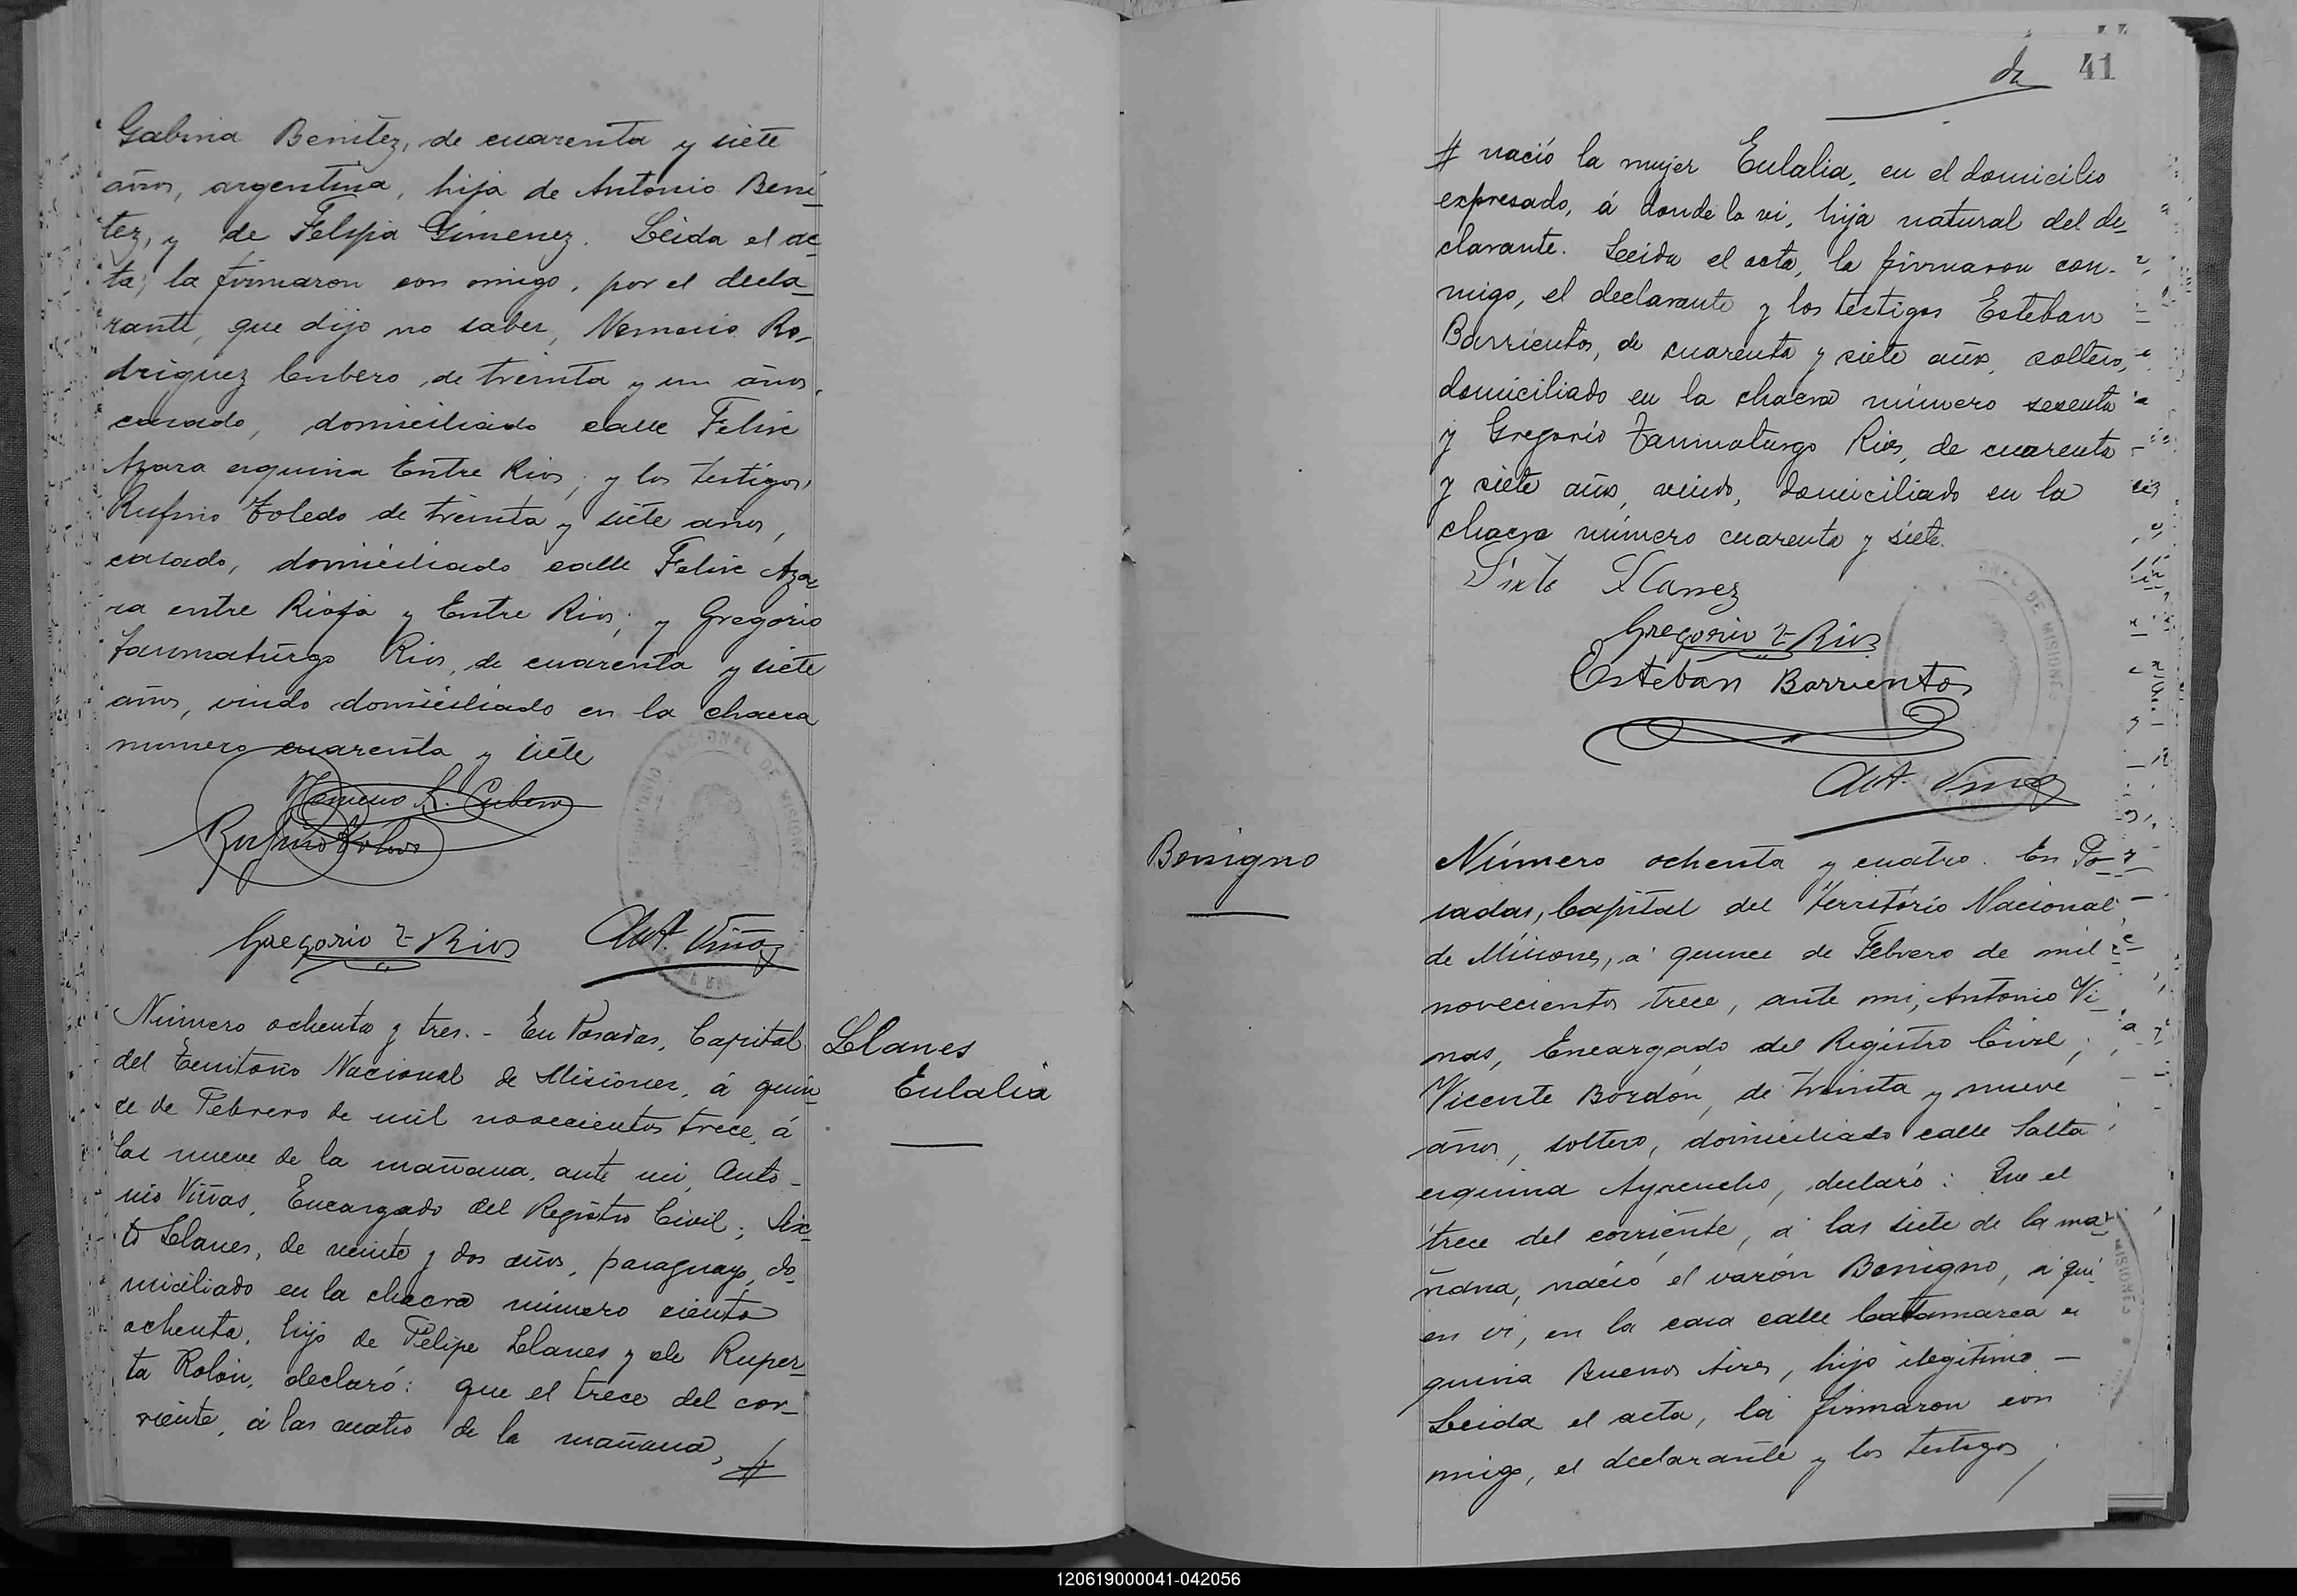 Gabina Benitez, de cuarenta y siete
años, argentina, hija de Antonio Beni-
tez, y de Felipa Gimenez. Leida el ac-
ta, la firmaron con migo, por el decla-
rante, que dijo no saber, Nemecio Ro-
driguez Cubero, de treinta y un años,
casado, domiciliado calle Felix
Azara esquina Entre Rios, y los testigos,
Rufino Toledo de treinta y siete años,
casado, domiciliado calle Felix Aza-
ra entre Rioja y Entre Rios; y Gregorio
Taumaturgo Rios, de cuarenta y siete
años, viudo domiciliado en la chacra
numero cuarenta y siete
Nemecio R. Cubero
Rufino Toledo
Gregorio T Rios
Ant. Viñas
Número ochenta y tres. - En Posadas, Capital
del Territorio Nacional de Misiones, á quin-
ce de Febrero de mil novecientos trece, á
las nueve de la mañana, ante mi, Anto-
nio Viñas, Encargado del Registro Civil; Six-
to Llanes, de veinte y dos años, paraguayo, do-
miciliado en la chacra número ciento
ochenta, hijo de Felipe Llanes y de Ruper-
ta Rolón, declaró: que el trece del cor-
riente, á las cuatro de la mañana, #
Llanes
Eulalia
41
# nació la mujer Eulalia, en el domicilio
expresado, á donde la vi, hija natural del de-
clarante. Leida el acta, la firmaron con-
migo, el declarante y los testigos Esteban
Barrientos, de cuarenta y siete años, soltero,
domiciliado en la chacra número sesenta
y Gregorio Taumaturgo Rios, de cuarenta
y siete años, viudo, domiciliado en la
chacra número cuarenta y siete.
Sixto Llanez
Gregorio T Rios
Esteban Barrientos
Ant. Viñas
Benigno
Número ochenta y cuatro. En Po-
sadas, Capital del Territorio Nacional
de Misiones, á quince de Febrero de mil
novecientos trece, ante mi, Antonio Vi-
ñas, Encargado del Registro Civil;
Vicente Bordón, de treinta y nueve
años, soltero, domiciliado calle Salta
esquina Ayacucho, declaró: Que el
trece del corriente, á las siete de la ma-
ñana, nació el varón Benigno, á qui-
en vi, en la casa calle Catamarca es
quina Buenos Aires, hijo ilegitimo -
Leida el acta, la firmaron con
migo, el declarante y los testigos,
120619000041-042056